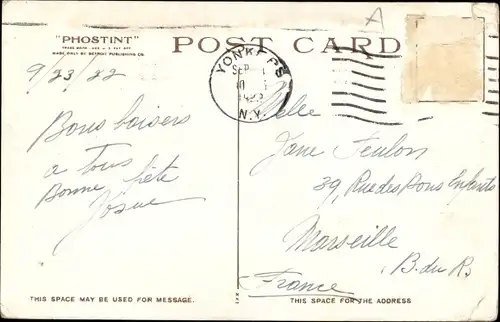 "PHOSTINT"
TRADE MARK REG U S PAT OFF
MADE ONLY BY DETROIT PUBLISHING CO.
POST CARD
A
YONKERS
SEP
N.Y.
9/23/22
Bons baisers
a tous
Bonne fête
Josue
Melle
Jane Feulon
39, Rue des Bons Enfants
Marseille
B. du R.
France
THIS SPACE MAY BE USED FOR MESSAGE.
THIS SPACE FOR THE ADDRESS